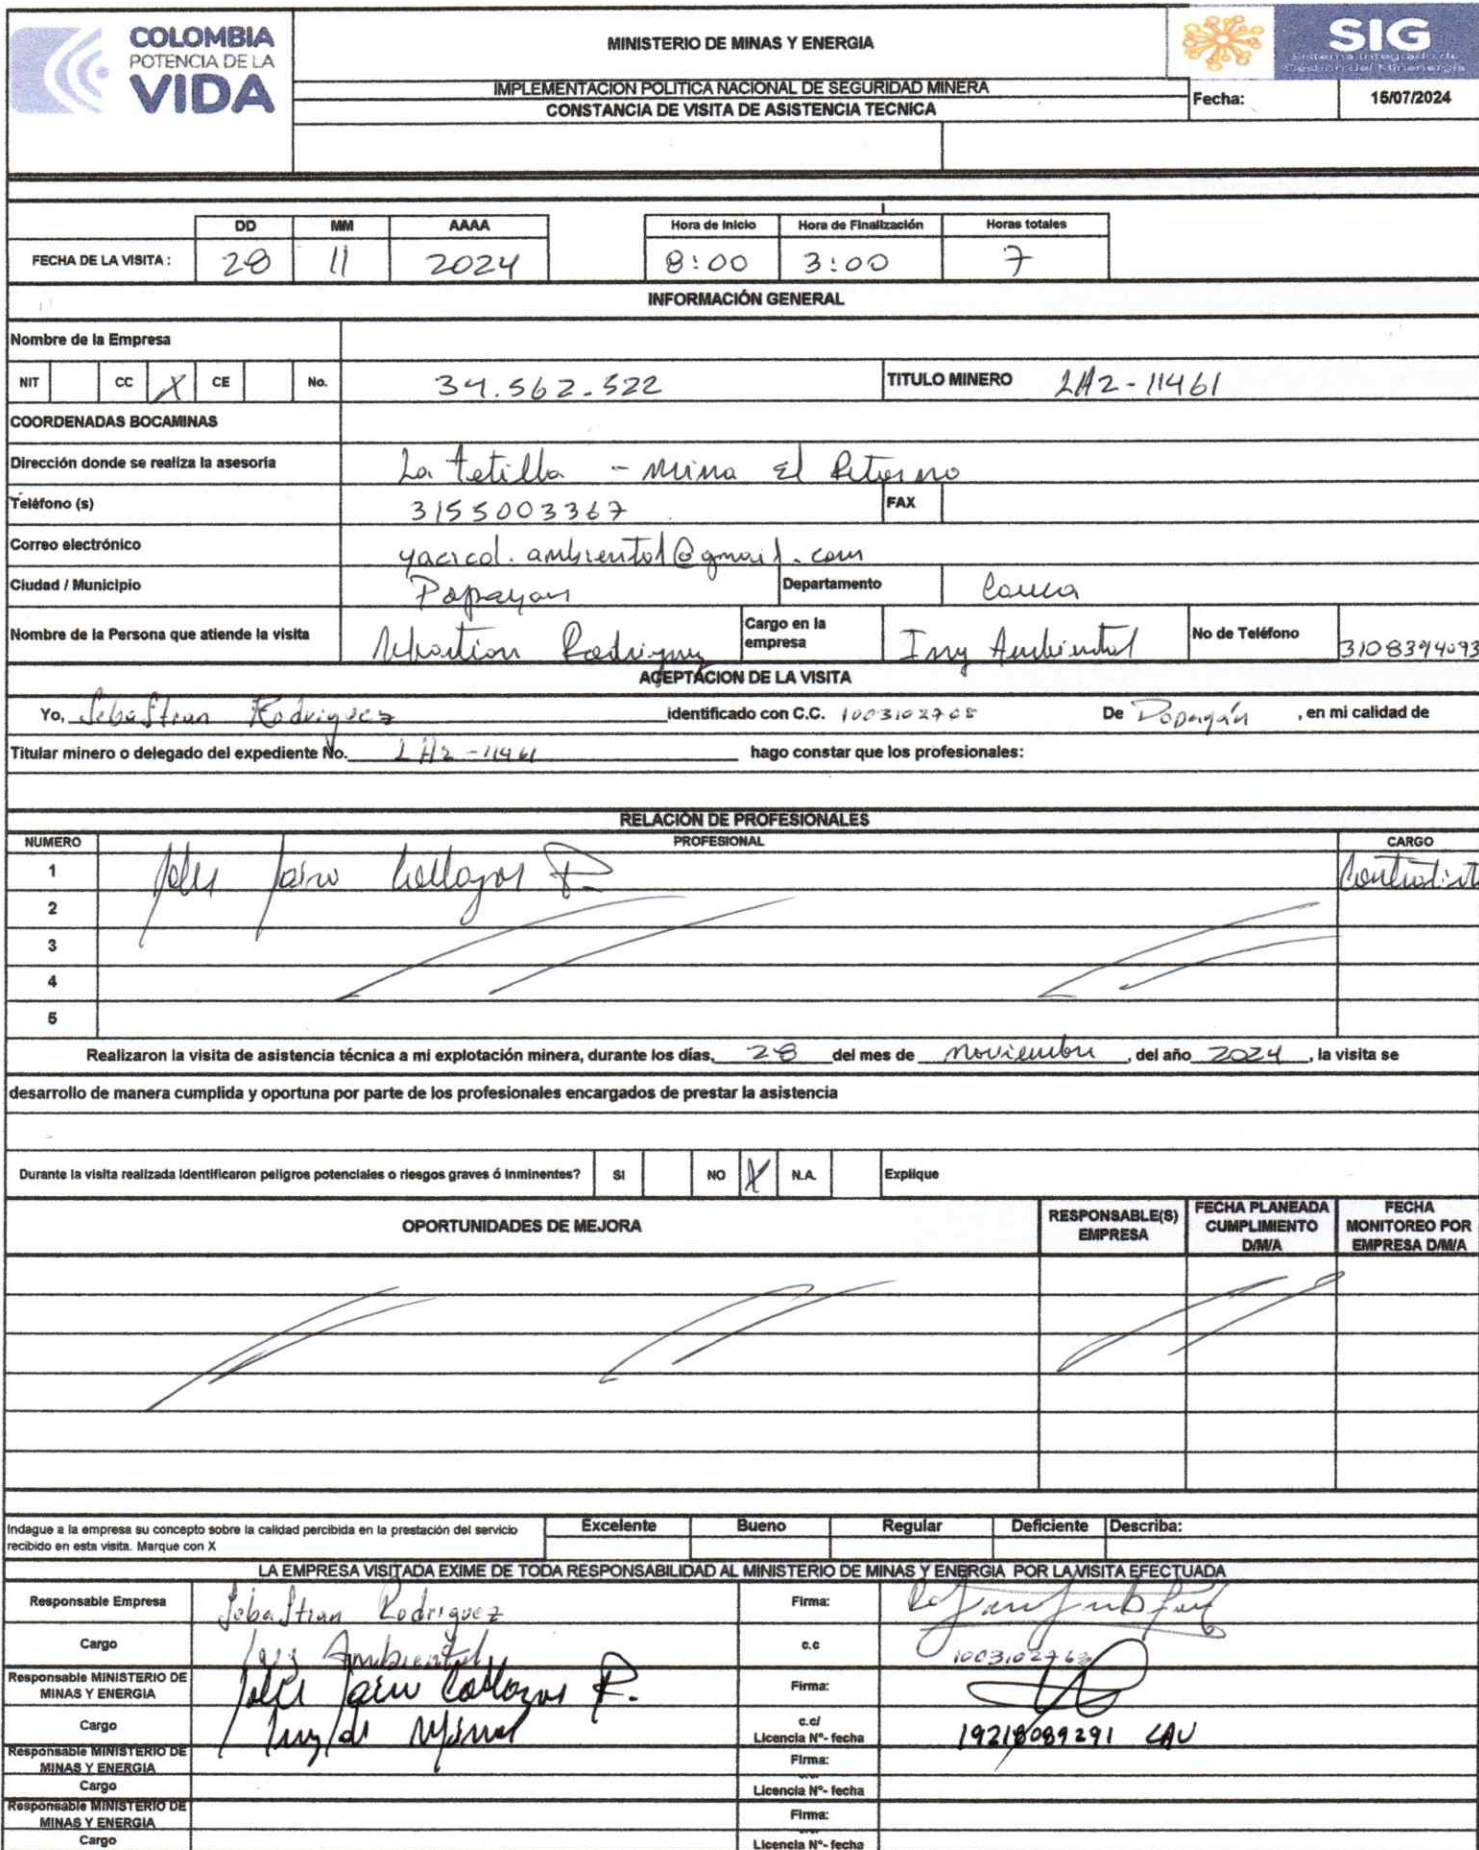 COLOMBIA
POTENCIA DE LA
VIDA
MINISTERIO DE MINAS Y ENERGIA
SIG
Sistema Integrado de
Gestión del Minenergía
IMPLEMENTACION POLITICA NACIONAL DE SEGURIDAD MINERA
CONSTANCIA DE VISITA DE ASISTENCIA TECNICA
Fecha: 15/07/2024
DD MM AAAA Hora de Inicio Hora de Finalización Horas totales
FECHA DE LA VISITA : 28 11 2024 8:00 3:00 7
INFORMACIÓN GENERAL
Nombre de la Empresa
NIT CC X CE No. 34.562.522 TITULO MINERO LA2-11461
COORDENADAS BOCAMINAS
Dirección donde se realiza la asesoría La tetilla - mina El Retorno
Teléfono (s) 3155003367 FAX
Correo electrónico yacicol.ambiental@gmail.com
Ciudad / Municipio Popayan Departamento Cauca
Nombre de la Persona que atiende la visita Sebastian Rodriguez Cargo en la empresa Ing Ambiental No de Teléfono 3108394093
ACEPTACION DE LA VISITA
Yo, Sebastian Rodriguez identificado con C.C. De Popayán , en mi calidad de
Titular minero o delegado del expediente No. LA2-11461 hago constar que los profesionales:
RELACIÓN DE PROFESIONALES
NUMERO PROFESIONAL CARGO
1 Jairo Collazos P. Contratista
2
3
4
5
Realizaron la visita de asistencia técnica a mi explotación minera, durante los días, 28 del mes de noviembre , del año 2024 , la visita se
desarrollo de manera cumplida y oportuna por parte de los profesionales encargados de prestar la asistencia
Durante la visita realizada identificaron peligros potenciales o riesgos graves ó inminentes? SI NO X N.A. Explique
OPORTUNIDADES DE MEJORA RESPONSABLE(S) EMPRESA FECHA PLANEADA CUMPLIMIENTO D/M/A FECHA MONITOREO POR EMPRESA D/M/A
Indague a la empresa su concepto sobre la calidad percibida en la prestación del servicio
recibido en esta visita. Marque con X Excelente Bueno Regular Deficiente Describa:
LA EMPRESA VISITADA EXIME DE TODA RESPONSABILIDAD AL MINISTERIO DE MINAS Y ENERGIA POR LA VISITA EFECTUADA
Responsable Empresa Sebastian Rodriguez Firma:
Cargo Ing Ambiental c.c
Responsable MINISTERIO DE MINAS Y ENERGIA Jairo Collazos P. Firma:
Cargo Ing de Minas c.c/ Licencia Nº- fecha 19218089291 CAU
Responsable MINISTERIO DE MINAS Y ENERGIA Firma:
Cargo Licencia Nº- fecha
Responsable MINISTERIO DE MINAS Y ENERGIA Firma:
Cargo Licencia Nº- fecha